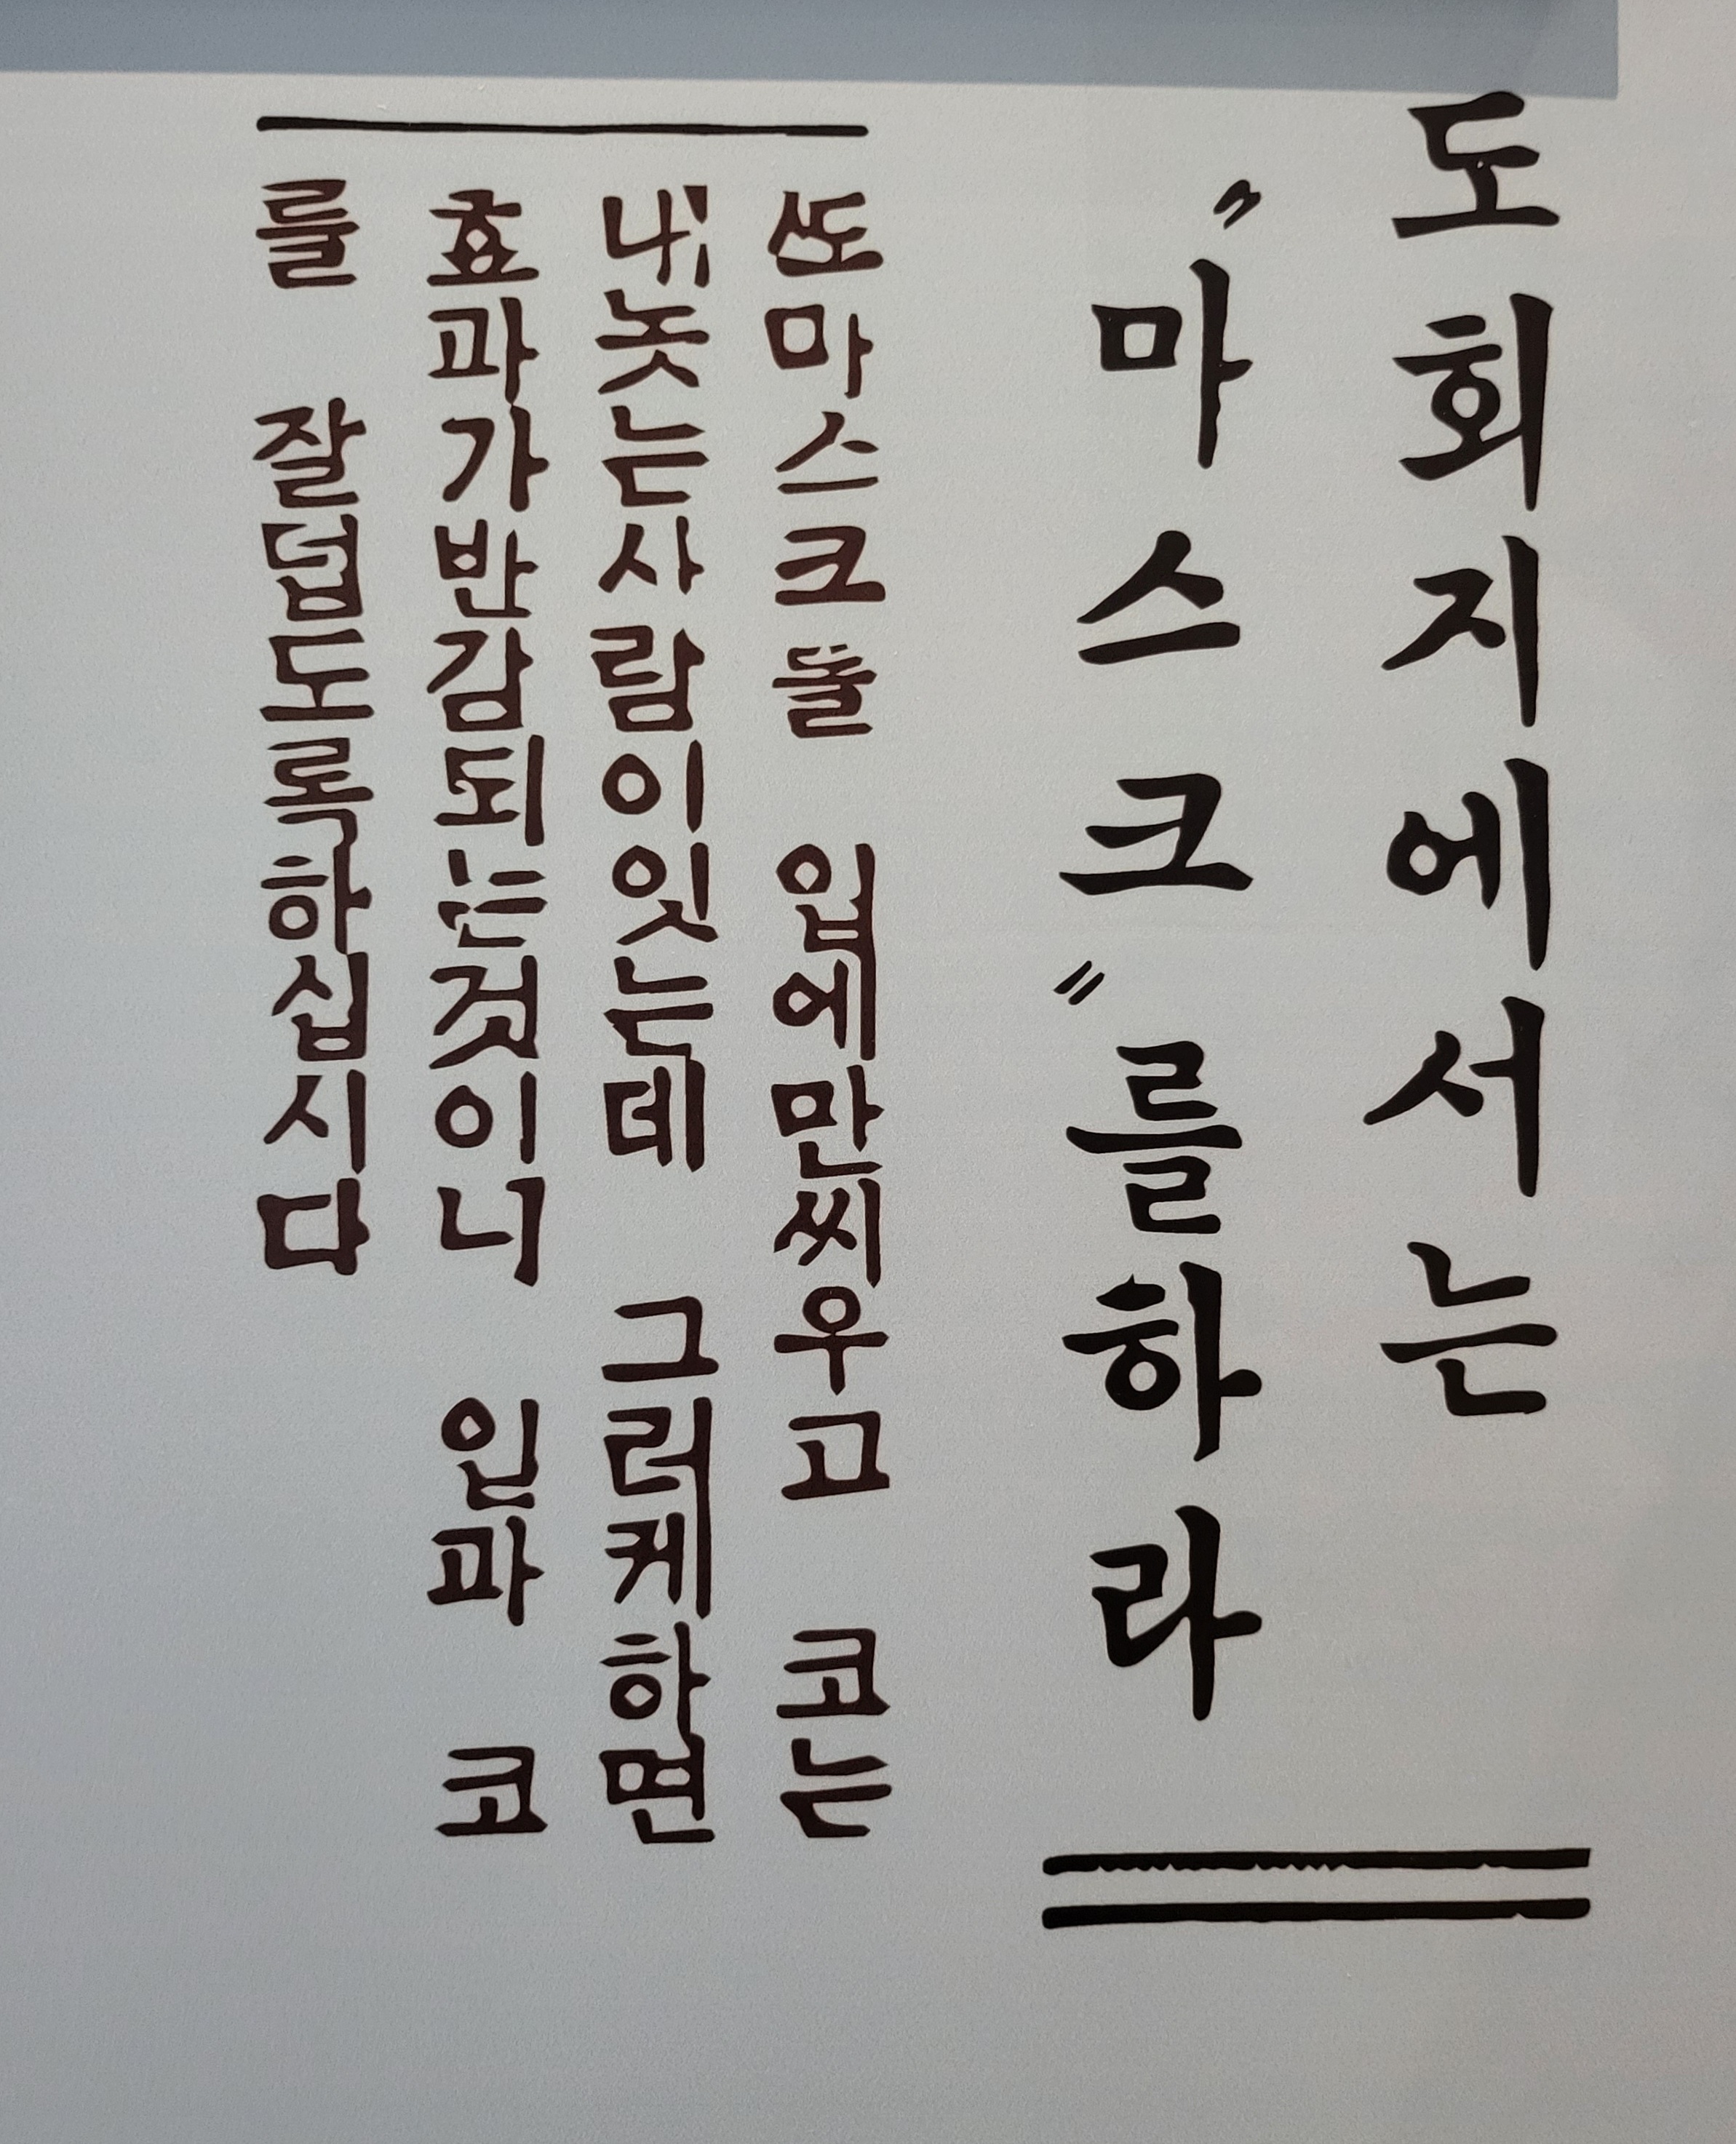 도회지에서는
〃마스크〃를하라
ᄯᅩ마스크를 입에만씨우고 코는
내놋는사람이잇는데 그러케하면
효과가반감되는것이니 입과 코
를 잘덥도록하십시다